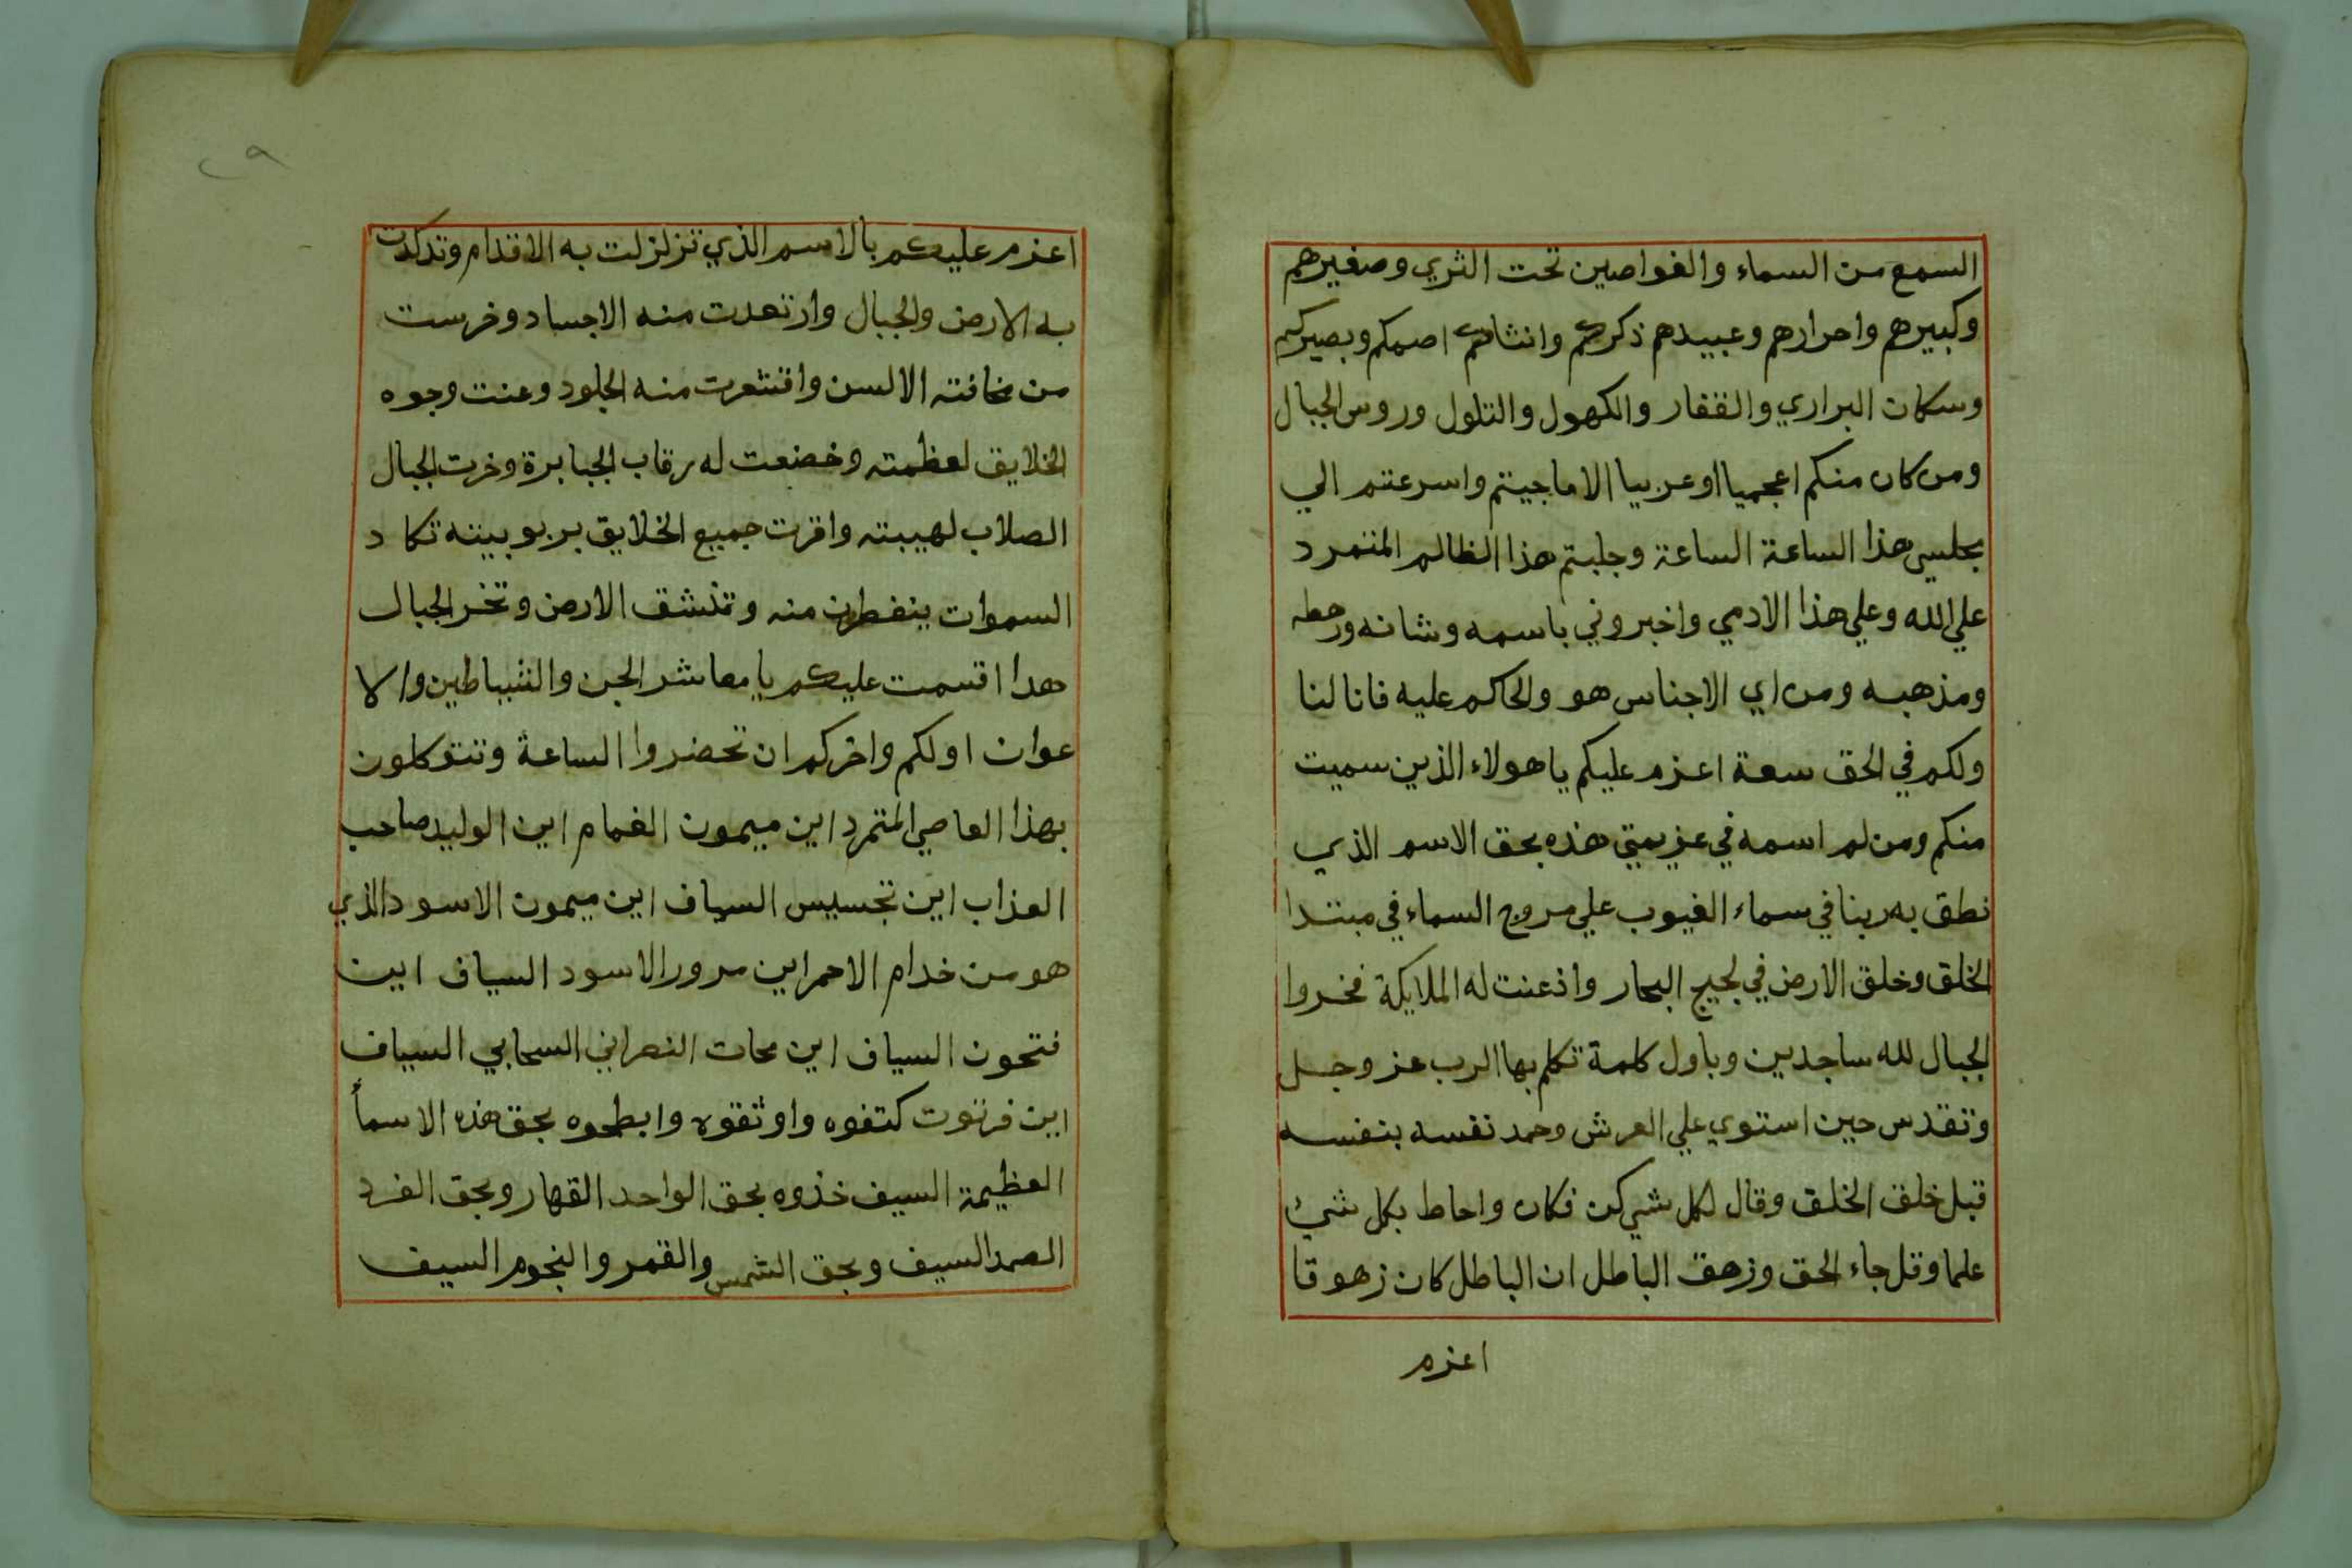 السمع من السماء والغواصين تحت الثري وصغيرهم
وكبيرهم واحرارهم وعبيدهم ذكركم وانثاكم اصمكم وبصيركم
وسكان البراري والقفار والكهول والتلول وروس الجبال
ومن كان منكم اعجميا اوعربيا الا ماجيتم واسرعتم الي
مجلسي هذا الساعة الساعة وجلبتم هذا الظالم المتمرد
علي الله وعلي هذا الادمي واخبروني باسمه وشانه ورهطه
ومذهبه ومن اي الاجناس هو والحاكم عليه فانا لنا
ولكم في الحق سعة اعزم عليكم يا هولاء الذين سميت
منكم ومن لم اسمه في عزيمتي هذه بحق الاسم الذي
نطق به ربنا في سماء الغيوب علي مروج السماء في مبتدا
الخلق وخلق الارض في لجيج البحار واذعنت له الملايكة فخروا
الجبال لله ساجدين وباول كلمة تكلم بها الرب عز وجل
وتقدس حين استوي علي العرش وحمد نفسه بنفسه
قبل خلق الخلق وقال لكل شي كن فكان واحاط بكل شيء
علما وقل جاء الحق وزهق الباطل ان الباطل كان زهوقا
اعزم
٢٩
اعزم عليكم بالاسم الذي تزلزلت به الاقدام وتدكدكت
به الارض والجبال وارتعدت منه الاجساد وخرست
من مخافته الالسن واقشعرت منه الجلود وعنت وجوه
الخلايق لعظمته وخضعت له رقاب الجبابرة وخرت الجبال
الصلاب لهيبته واقرت جميع الخلايق بربوبيته تكاد
السموات ينفطرن منه وتنشق الارض وتخر الجبال
هدا اقسمت عليكم يا معاشر الجن والشياطين والا
عوان اولكم واخركم ان تحضروا الساعة وتتوكلون
بهذا العاصي المتمرد اين ميمون الغمام اين الوليد صاحب
العذاب اين السياف اين ميمون الاسود الذي
هو من خدام الاحمر اين مرور الاسود السياف اين
فتحون السياف اين محات النصراني السحابي السياف
اين فرتوت كتفوه واوثقوه وابطحوه بحق هذه الاسمأ
العظيمة السيف خذوه بحق الواحد القهار وبحق الفرد
الصمد السيف وبحق الشمس والقمر والنجوم السيف